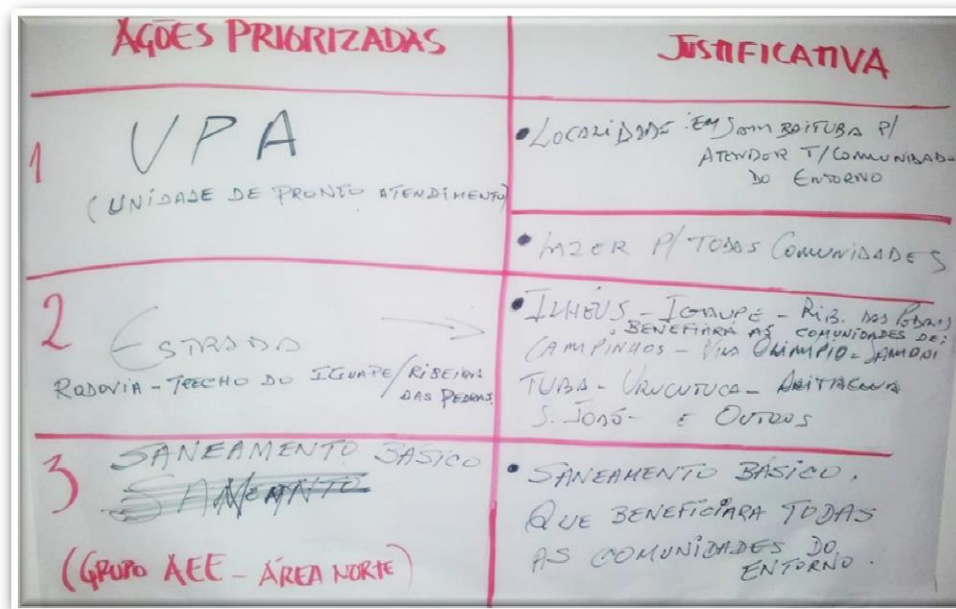 AÇÕES PRIORIZADAS
JUSTIFICATIVA
1
UPA
(UNIDADE DE PRONTO ATENDIMENTO)
• LOCALIDADE EM SAMBAITUBA P/
ATENDER T/COMUNIDAD
DO ENTORNO
• LAZER P/ TODAS COMUNIDADES
2
ESTRADA
RODOVIA - TRECHO DO IGUAPE/RIBEIRA
DAS PEDRAS
• ILHÉUS - IGUAPE - RIB. DAS PEDRAS
BENEFIARÁ AS COMUNIDADES DE:
CAMPINHOS - VILA OLIMPIO - SAMBAI
TUBA - URUCUTUCA - ARITAGUA
S. JOÃO - E OUTROS
3
SANEAMENTO BÁSICO
(GRUPO AEE - ÁREA NORTE)
• SANEAMENTO BÁSICO.
QUE BENEFICIARA TODAS
AS COMUNIDADES DO
ENTORNO.